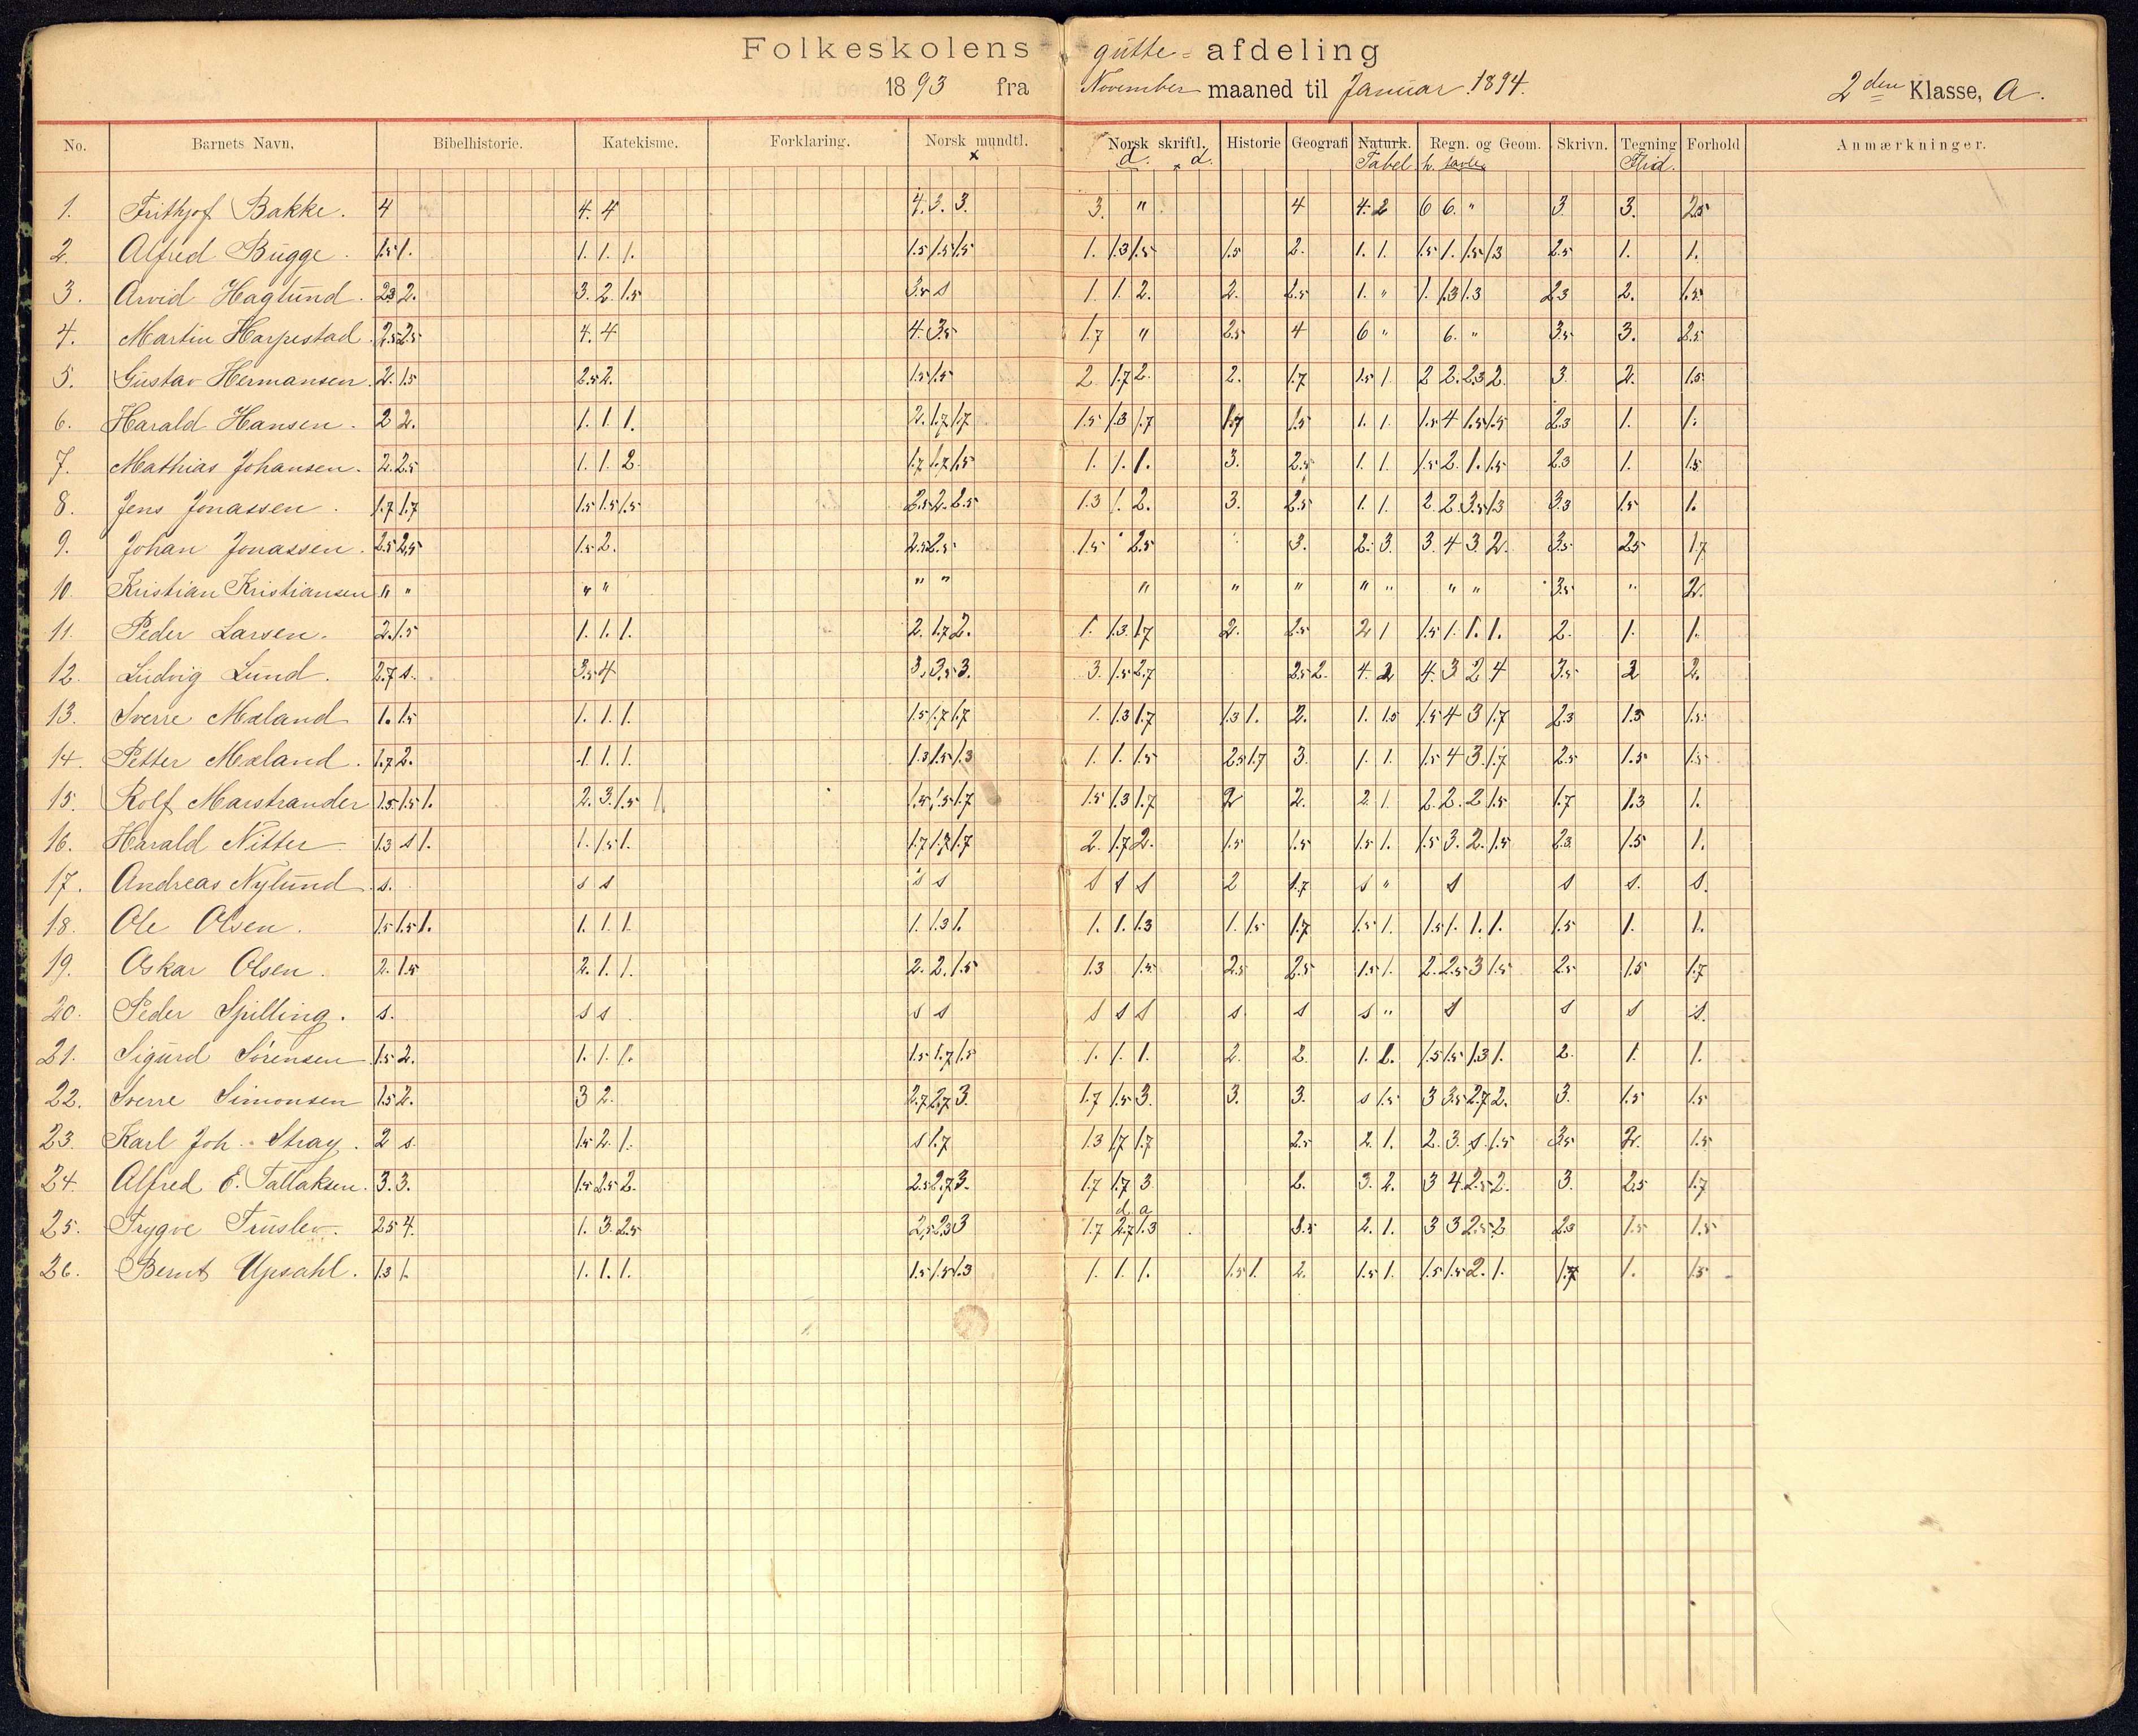 Folkeskolens gutte- afdeling
1893 fra November maaned til Januar 1894. 2den Klasse, A.
No. Barnets Navn. Bibelhistorie. Katekisme. Forklaring. Norsk mundtl. Norsk skriftl. Historie Geografi Naturk. Regn. og Geom. Skrivn. Tegning Forhold Anmærkninger.
x d. x d. Tabel h. tavle Flid.
1. Frithjof Bakke. 4 4. 4 4. 3. 3. 3. " 4 4. 2 6 6. " 3 3. 2.5
2. Alfred Bugge. 1.5 1. 1. 1. 1. 1.5 1.5 1.5 1. 1.3 1.5 1.5 2. 1. 1. 1.5 1. 1.5 1.3 2.5 1. 1.
3. Arvid Haglund. 2.3 2. 3. 2. 1.5 3.5 s 1. 1. 2. 2. 2.5 1. " 1. 1.3 1.3 2.3 2. 1.5
4. Martin Harpestad. 2.5 2.5 4. 4 4. 3.5 1.7 " 2.5 4 6 " 6. " 3.5 3. 2.5
5. Gustav Hermansen. 2. 1.5 2.5 2. 1.5 1.5 2 1.7 2. 2. 1.7 1.5 1 2 2. 2.3 2. 3 2. 1.5
6. Harald Hansen. 2 2. 1. 1. 1. 2. 1.7 1.7 1.5 1.3 1.7 1.7 1.5 1. 1. 1.5 4 1.5 1.5 2.3 1. 1.
7. Mathias Johansen. 2. 2.5 1. 1. 2. 1.7 1.7 1.5 1. 1. 1. 3. 2.5 1. 1. 1.5 2. 1. 1.5 2.3 1. 1.5
8. Jens Jonassen. 1.7 1.7 1.5 1.5 1.5 2.5 2. 2.5 1.3 1. 2. 3. 2.5 1. 1. 2. 2. 3.5 1.3 3.3 1.5 1.
9. Johan Jonassen. 2.5 2.5 1.5 2. 2.5 2.5 1.5 2.5 3. 2. 3. 3. 4 3 2. 3.5 2.5 1.7
10. Kristian Kristiansen " " " " " " " " " " " " " 3.5 " 2.
11. Peder Larsen. 2. 1.5 1. 1. 1. 2. 1.7 2. 1. 1.3 1.7 2. 2.5 2 1 1.5 1. 1. 1. 2. 1. 1.
12. Ludvig Lund. 2.7 s. 3.5 4 3. 3.5 3. 3. 1.5 2.7 2.5 2. 4. 2 4. 3 2 4 3.5 2 2.
13. Sverre Mæland 1. 1.5 1. 1. 1. 1.5 1.7 1.7 1. 1.3 1.7 1.3 1. 2. 1. 1.5 1.5 4 3 1.7 2.3 1.3 1.5
14. Petter Mæland. 1.7 2. 1. 1. 1. 1.3 1.5 1.3 1. 1. 1.5 2.5 1.7 3. 1. 1. 1.5 4 3. 1.7 2.5 1.5 1.5
15. Rolf Marstrander 1.5 1.5 1. 2. 3. 1.5 1. 1.5 1.5 1.7 1.5 1.3 1.7 2 2. 2. 1. 2. 2. 2 1.5 1.7 1.3 1.
16. Harald Nitter 1.3 s 1. 1. 1.5 1. 1.7 1.7 1.7 2. 1.7 2. 1.5 1.5 1.5 1. 1.5 3. 2. 1.5 2.3 1.5 1.
17. Andreas Nylund s. s s s s s s s 2 1.7 s " s s s. s.
18. Ole Olsen. 1.5 1.5 1. 1. 1. 1. 1. 1.3 1. 1. 1. 1.3 1. 1.5 1.7 1.5 1. 1.5 1. 1. 1. 1.5 1. 1.
19. Oskar Olsen. 2. 1.5 2. 1. 1. 2. 2. 1.5 1.3 1.5 2.5 2.5 1.5 1. 2. 2.5 3 1.5 2.5 1.5 1.7
20. Peder Spilling. s. s s s s s s s s. s s " s s s s.
21. Sigurd Sørensen 1.5 2. 1. 1. 1. 1.5 1.7 1.5 1. 1. 1. 2. 2. 1. 2. 1.5 1.5 1.3 1. 2. 1. 1.
22. Sverre Simonsen 1.5 2. 3 2. 2.7 2.7 3. 1.7 1.5 3. 3. 3. s 1.5 3 3.5 2.7 2. 3. 1.5 1.5
23. Karl Joh. Stray. 2 s. 1.5 2. 1. s 1.7 1.3 1.7 1.7 2.5 2. 1. 2. 3. s. 1.5 3.5 2. 1.5
24. Alfred E. Tallaksen. 3. 3. 1.5 2.5 2. 2.5 2.7 3. 1.7 1.7 3 2. 3. 2. 3 4. 2.5 2. 3. 2.5 1.7
d. a
25. Trygve Truslew. 2.5 4. 1. 3. 2.5 2.5 2.3 3 1.7 2.7 1.3 3.5 2. 1. 3 3 2.5 2 2.3 1.5 1.5
26. Bernt Upsahl. 1.3 1. 1. 1. 1. 1.5 1.5 1.3 1. 1. 1. 1.5 1. 2. 1.5 1. 1.5 1.5 2. 1. 1.7 1. 1.5